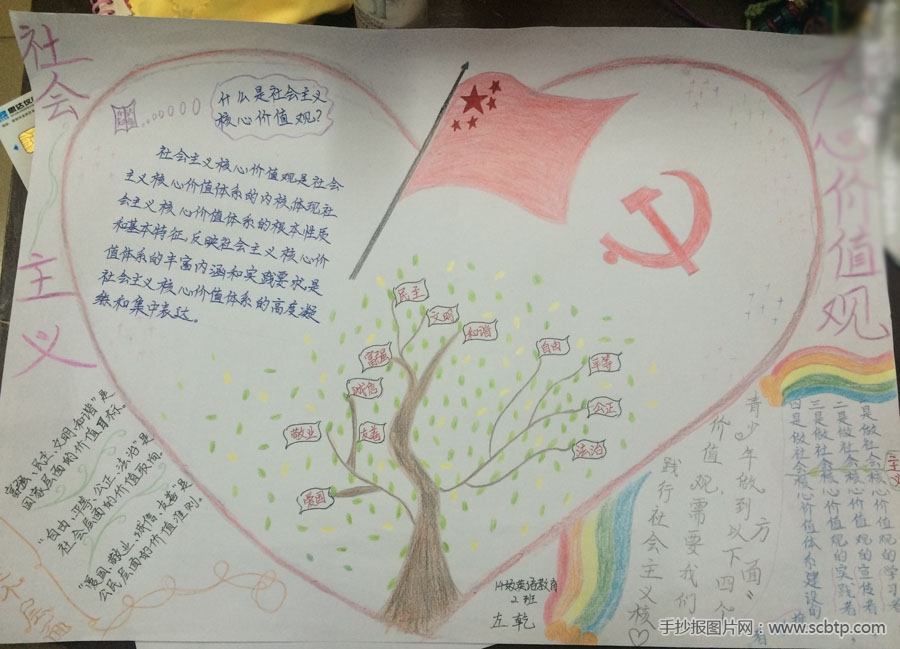 社会主义
核心价值观
什么是社会主义
核心价值观?
社会主义核心价值观是社会
主义核心价值体系的内核,体现社
会主义核心价值体系的根本性质
和基本特征,反映社会主义核心价
值体系的丰富内涵和实践要求,是
社会主义核心价值体系的高度凝
练和集中表达。
民主
文明
和谐
富强
诚信
敬业
友善
爱国
自由
平等
公正
法治
"富强、民主、文明、和谐"是
国家层面的价值目标。
"自由、平等、公正、法治"是
社会层面的价值取向.
"爱国、敬业、诚信、友善"是
公民层面的价值准则。
14级英语教育
2班
左乾
践行社会主义核
价值观需要我们
青少年做到以下四个
方面"
是做社会主义核心价值观的学习者
二是做社会核心价值观的宣传者
三是做社会核心价值观的实践者
四是做社会核心价值体系建设的
手抄报图片网:www.scbtp.com